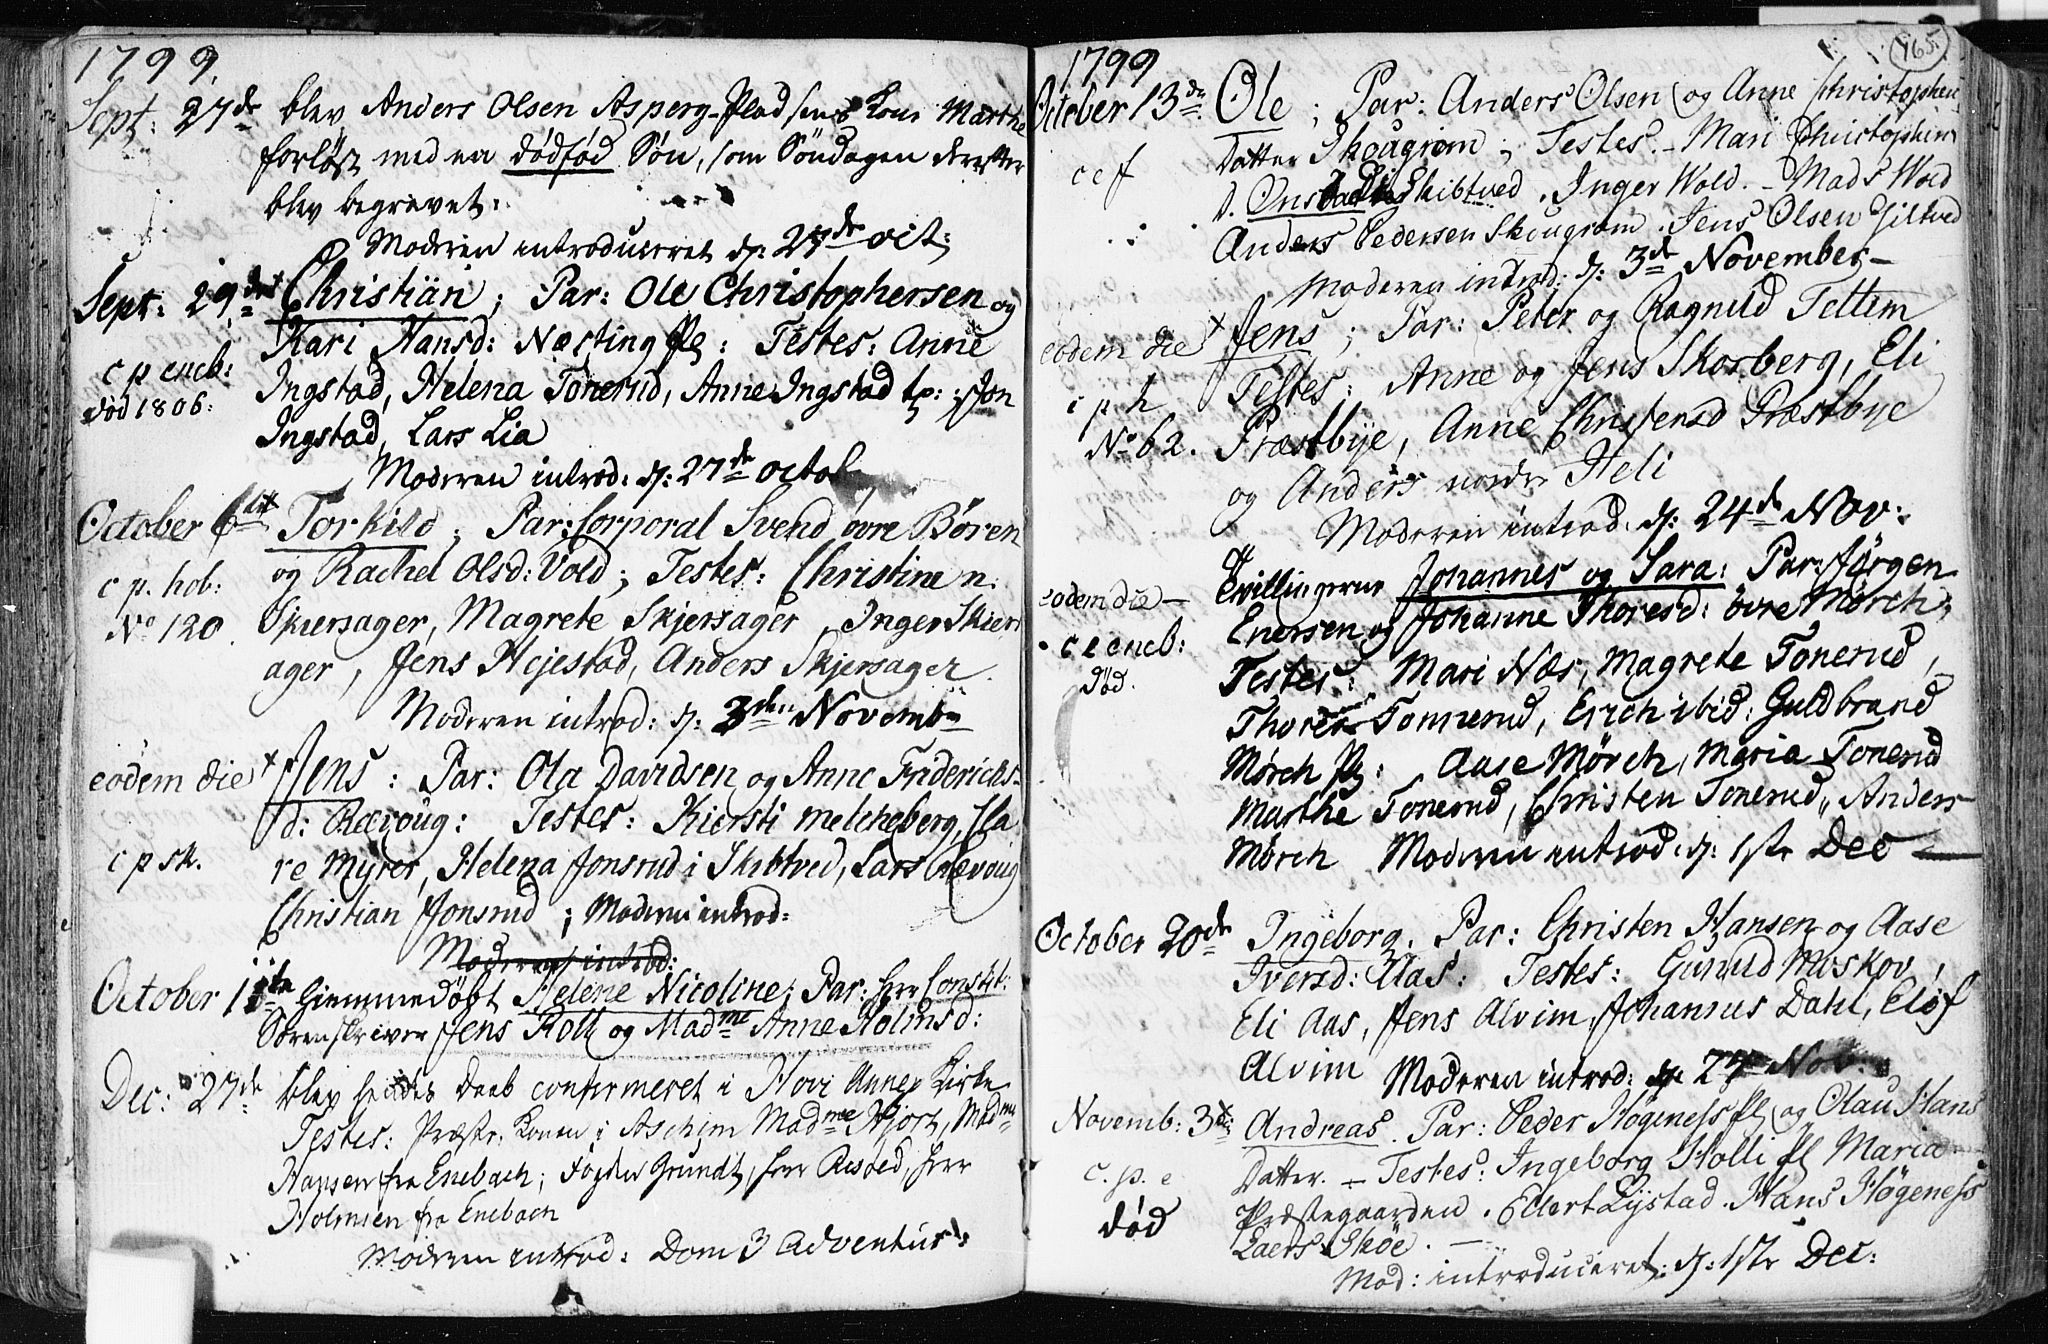 1799.
Sept: 27de blev Anders Olsen Asperg-Pladsens Kone Marthe
forløst med en dødfød Søn, som Söndagen derefter
blev begravet:
Moderen introduceret d: 27de oct:
Sept: 29de Christian; Par: Ole Christophersen og
Kari Hansd: Næsting Pl: Testes: Anne
c p eneb: Ingstad, Helena Tonerud, Anne Ingstad tp: Jon
død 1806: Ingstad, Lars Lia
Moderen introd: d: 27de octob
October 6te Torkild; Par: Corporal Svend övre Børen
og Rachel Olsd: Vold; Testes: Christine n.
c p. hob: Skiersager, Magrete Skjersager, Inger Skiers
No 120 ager, Jens Hejestad, Anders Skjersager.
Moderen introd: d: 3den Novemb
eodem die Jens: Par: Ola Davidsen og Anne Friderichs-
d: Rævoug: Testes: Kiersti Melcheberg, Cla
c p sk. re Myrer, Helena Jonsrud i Skibtved, Lars Rævoug
Christian Jonsrud; Moderen introd:
Moderen introd:
October 11te Giemmedøbt Helene Nicoline; Par: Herr Constit:
Sorenskriver Jens Roll og Madme Anne Holmsd:
Dec: 27de blev hendes Daab confirmeret i Hovi Annex Kirke
Testes: Præste Konen i Aschim Madme Hjort, Madme
Hansen fra Enebach; Fogden Grundt, Herr Resoed, Herr
Holmsen fra Enebach
Moderen introd: Dom 3 Adventus:
1799
165.
October 13de Ole; Par: Anders Olsen og Anne Christophen
Datter Skougrom; Testes. - Mari Christophers
c e f D. Onstad Skibtved. Inger Wold. - Mads Wold
Anders Pedersen Skougrom. Jens Olsen Giltved
Moderen introd: d: 3de November
eodem die Jens; Par: Peter og Ragnild Tettem
Testes: Anne og Jens Skosberg, Eli
c p h
No 62. Præstbye, Anne Christensd Præstbye
og Anders nordre Heli
Moderen introd. d: 24de Nov:
eodem die - Tvillingerne Johannes og Sara: Par: Jørgen
Enersen og Johanne Thoresd: övre Mørch;
c e eneb: Testes: Mari Næs, Magrete Tonerud,
død. Thorer Tonnerud, Erich ibid: Guldbrand
Mørch Pl: Aase Mörch, Maria Tonerud
Marthe Tonerud, Christen Tonerud, Anders
Mørch Moderen introd. d: 1ste Dec
October 20de Ingeborg. Par: Christen Hansen og Aase
Iversd: Aas: Testes: Gunild Moskov,
Eli Aas, Jens Alvim, Johannes Dahl, Elof
Alvim Moderen introd: d: 27 Nov.:
Novemb: 3de Andreas. Par: Peder Høgeness Pl og Olau Hans
c. p. e Datter. - Testes: Ingeborg Holli Pl Maria
død Præstegaarden. Edert Lystad. Hans Högeness
Laers Sköe. -
Mod: introduceret: d: 1ste Dec: